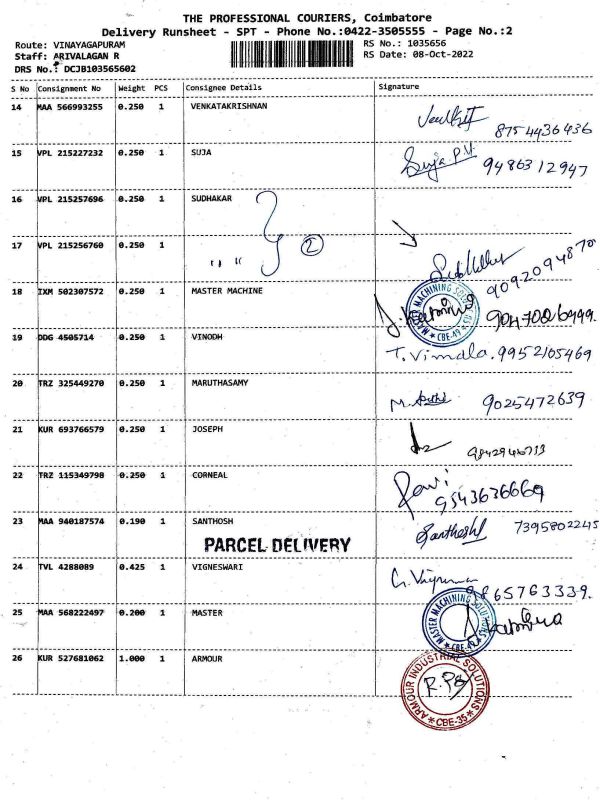 THE PROFESSIONAL COURIERS, Coimbatore
Delivery Runsheet - SPT - Phone No.:0422-3505555 - Page No.:2
Route: VINAYAGAPURAM RS No.: 1035656
Staff: ARIVALAGAN R RS Date: 08-Oct-2022
DRS No.: DCJB103565602
S No Consignment No Weight PCS Consignee Details Signature
14 MAA 566993255 0.250 1 VENKATAKRISHNAN
8754436436
15 VPL 215227232 0.250 1 SUJA Suja P.V.
9486312947
16 VPL 215257696 0.250 1 SUDHAKAR
17 VPL 215256760 0.250 1 2
9092094870
18 IXM 502307572 0.250 1 MASTER MACHINE
MASTER MACHINING SOLUTIONS * CBE-49 *
9047006499.
19 DDG 4505714 0.250 1 VINODH
T. Vimala. 9952105469
20 TRZ 325449270 0.250 1 MARUTHASAMY
9025472639
21 KUR 693766579 0.250 1 JOSEPH
22 TRZ 115349798 0.250 1 CORNEAL
Ravi
9543636669
23 MAA 940187574 0.190 1 SANTHOSH
Santhosh 7395802245
PARCEL DELIVERY
24 TVL 4288089 0.425 1 VIGNESWARI
65763339.
25 MAA 568222497 0.200 1 MASTER
MASTER MACHINING SOLUTIONS * CBE-49 *
26 KUR 527681062 1.000 1 ARMOUR
ARMOUR INDUSTRIAL SOLUTIONS * CBE-35 *